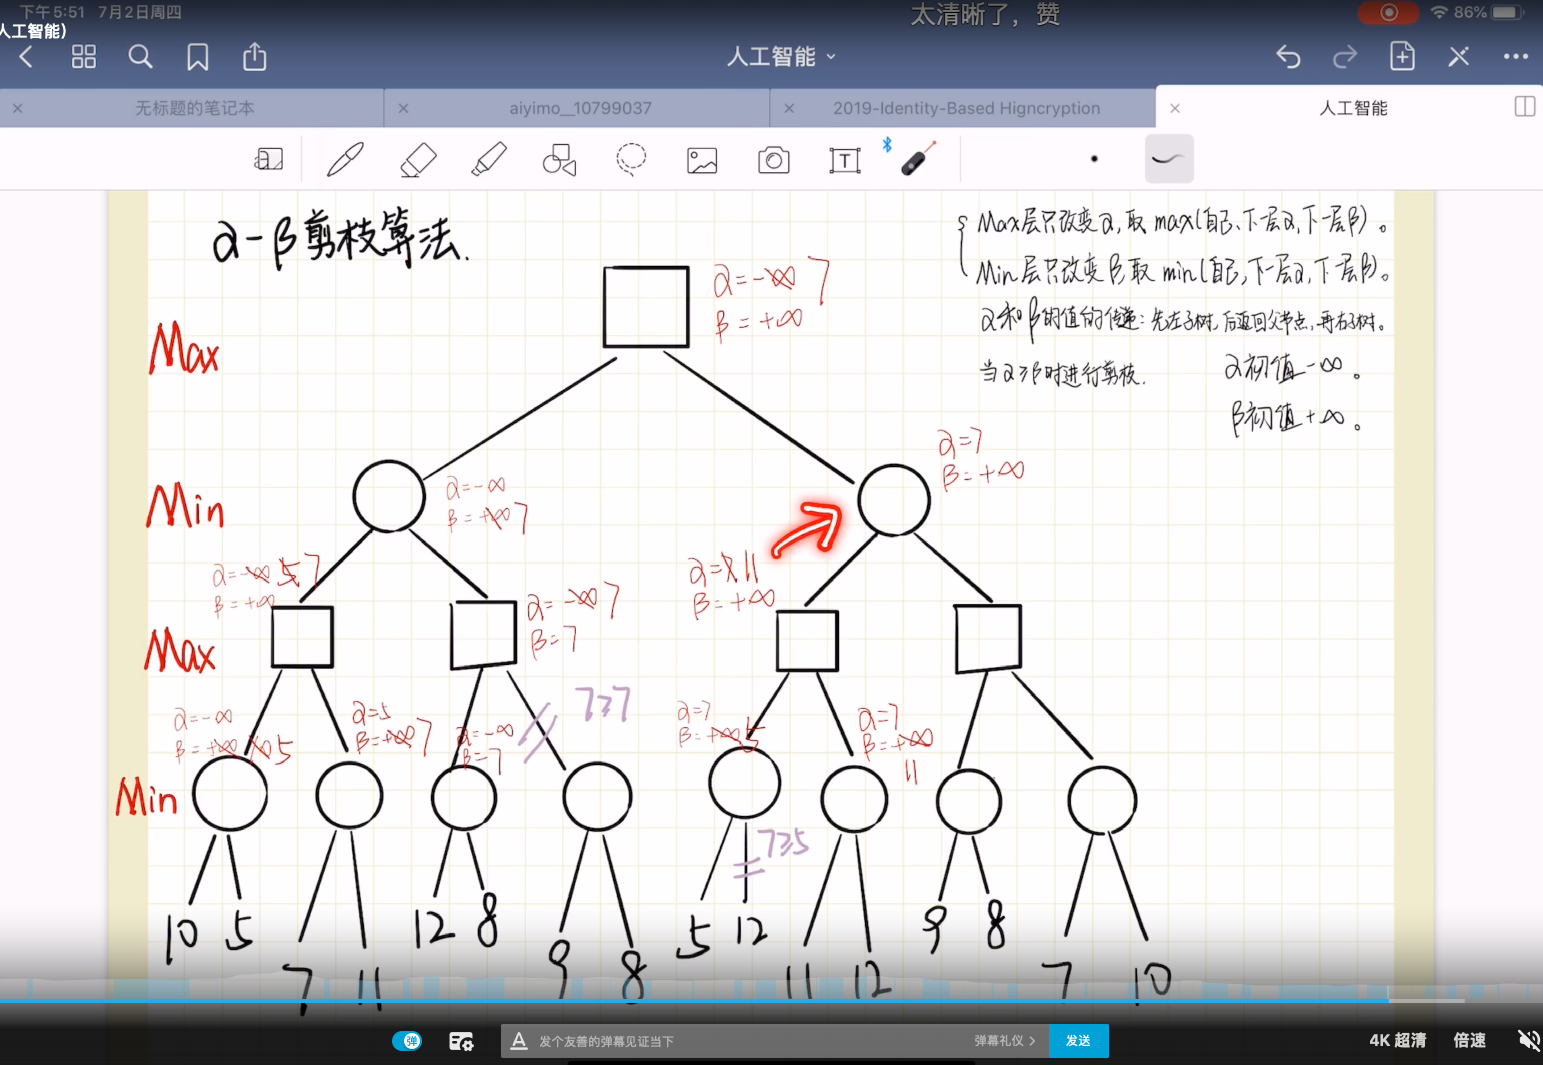 下午5:51 7月2日周四
太清晰了，赞
86%
人工智能)
人工智能
无标题的笔记本
aiyimo__10799037
2019-Identity-Based Higncryption
人工智能
T
α-β剪枝算法.
Max层只改变α,取max(自己、下一层α,下一层β)。
Min层只改变β,取min(自己,下一层α,下一层β)。
α和β的值的传递：先左子树,后返回父节点,再右子树。
当α≥β时进行剪枝.
α初值-∞。
β初值+∞。
α=-∞ 7
β=+∞
Max
α=7
β=+∞
Min
α=-∞
β=+∞ 7
α=-∞ 5 7
β=+∞
α=-∞ 7
β=7
α=7 11
β=+∞
Max
7≥7
α=-∞
β=+∞ 10 5
α=5
β=+∞ 7
α=-∞
β=7
α=7
β=+∞ 5
α=7
β=+∞
11
Min
7≥5
10 5 12 8 5 12 9 8
7 11 9 8 11 12 7 10
弹
A 发个友善的弹幕见证当下
弹幕礼仪
发送
4K 超清
倍速